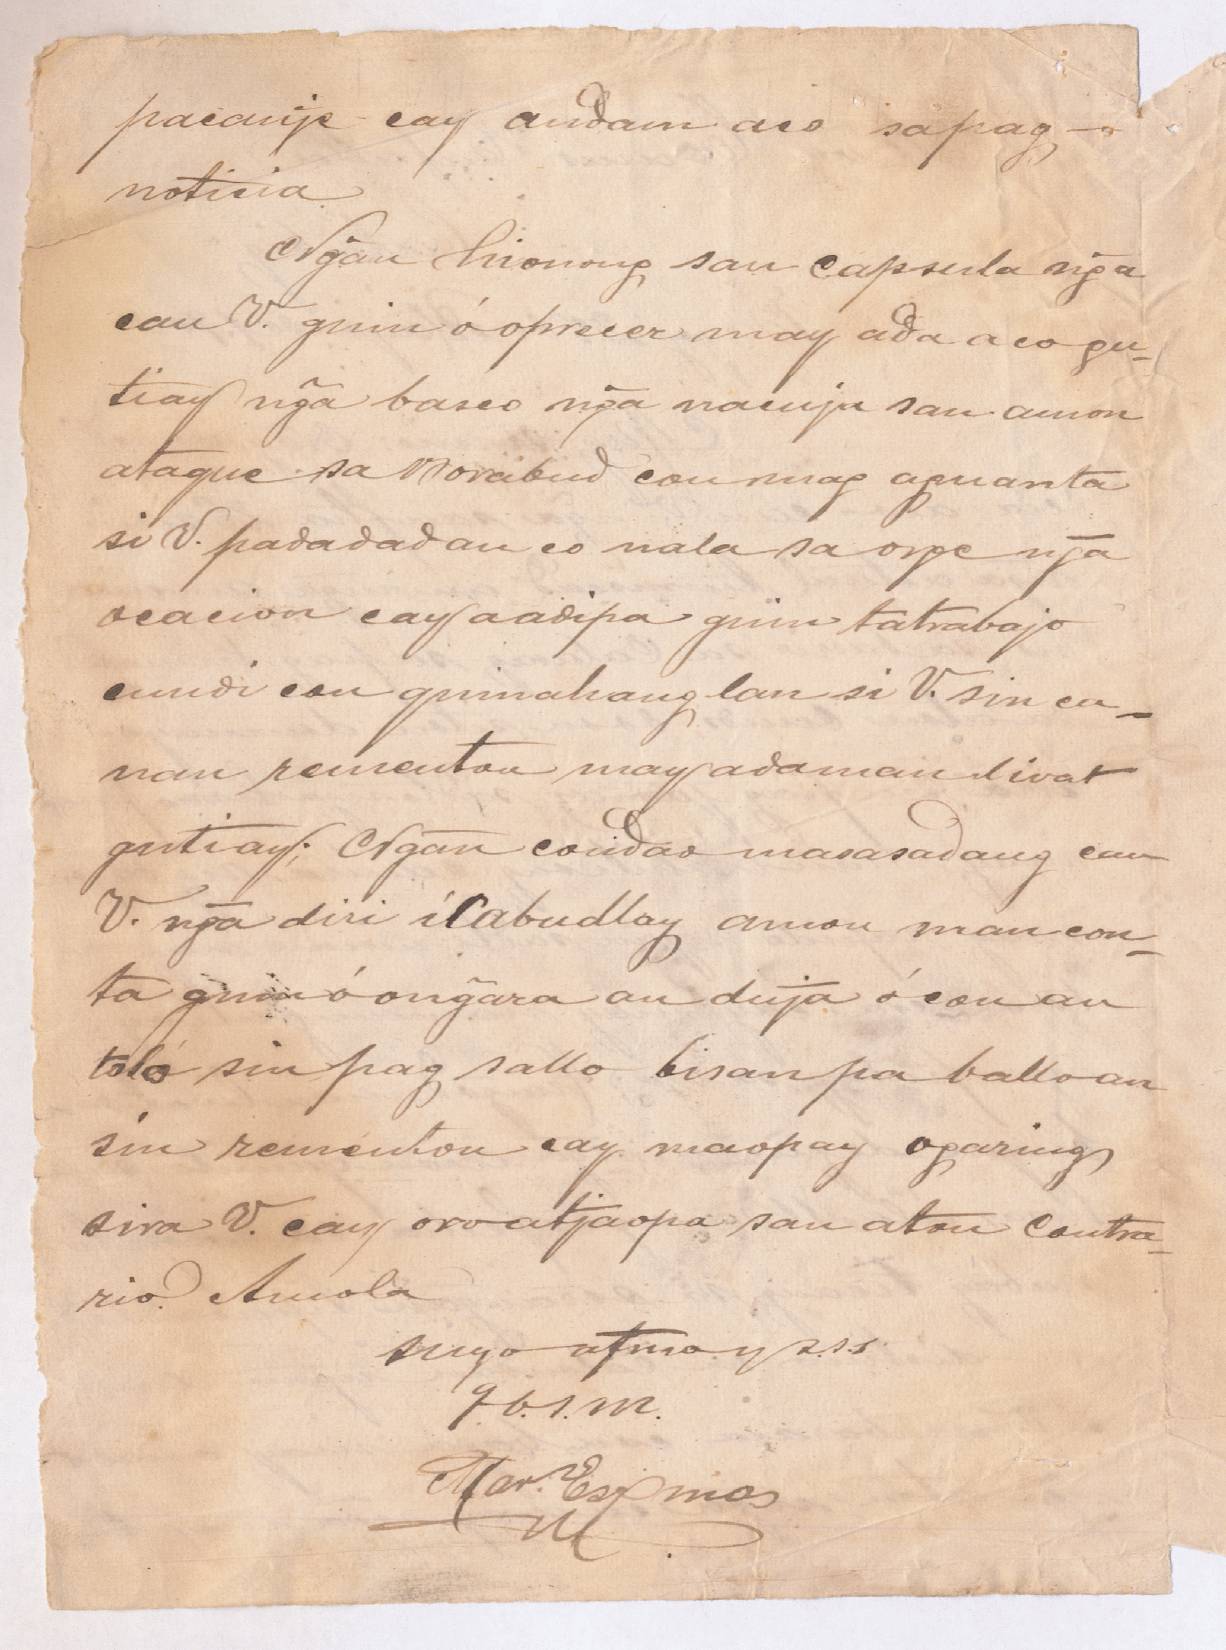 pacanije cay andam aco sa pag-
noticia.
Ng̃an hionong san capsula ng̃a
can V. guin ó oprecer may ada aco gu-
tiay ng̃a basco ng̃a nacuja san amon
ataque sa Borabud con mag aguanta
si V. padadadan co nala sa orge ng̃a
ocacion cay aadipa guin tatrabajo
cundi con guinahanglan si V. sin ca-
nan rementon may adaman livat
gutiay; Ng̃an condao masasadang can
V. ng̃a diri iCabudlay amon man con-
ta guin ó ong̃ara an duja ó con an
toló sin pag sallo bisan pa balloan
sin rementon cay maopay ogaring
sira V. cay oroatjaopa san aton Contra-
rio. Amola
suyo atmo. y s.s.s
q. b. s. M.
Mar.